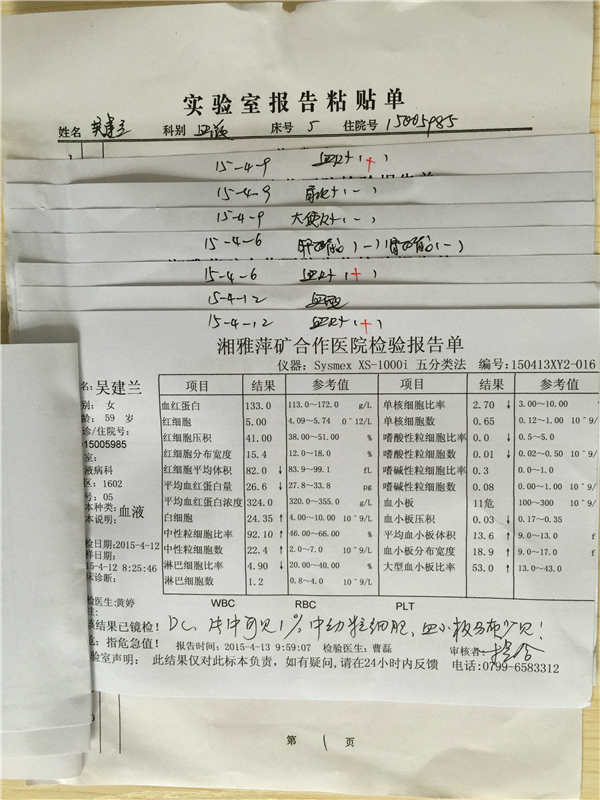 实验室报告粘贴单
姓名 吴建兰 科别 血液 床号 5 住院号 15005985
15-4-9 血R+(+)
15-4-9 尿R+(-)
15-4-9 大便R+(-)
15-4-6 (-) (-)
15-4-6 血R+(+)
15-4-12
15-4-12 血R+(+)
湘雅萍矿合作医院检验报告单
仪器: Sysmex XS-1000i 五分类法 编号:150413XY2-016
名: 吴建兰
别: 女
龄: 59 岁
诊/住院号:
15005985
室:
液病科
区: 1602
号: 05
本种类: 血液
本说明:
检日期:2015-4-12
样日期:
15-4-12 8:25:46
床诊断:
检医生:黄婷
注:
项目 结果 参考值 项目 结果 参考值
血红蛋白 133.0 113.0~172.0 g/L 单核细胞比率 2.70 ↓ 3.00~10.00
红细胞 5.00 4.09~5.74 0^12/L 单核细胞数 0.65 0.12~1.00 10^9/
红细胞压积 41.00 38.00~51.00 % 嗜酸性粒细胞比率 0.0 ↓ 0.5~5.0
红细胞分布宽度 15.4 12.0~18.0 % 嗜酸性粒细胞数 0.01 ↓ 0.02~0.50 10^9/
红细胞平均体积 82.0 ↓ 83.9~99.1 fl 嗜碱性粒细胞比率 0.3 0.0~1.0
平均血红蛋白量 26.6 ↓ 27.8~33.8 pg 嗜碱性粒细胞数 0.08 0.00~1.00 10^9/
平均血红蛋白浓度 324.0 320.0~355.0 g/L 血小板 11危 100~300 10^9/
白细胞 24.35 ↑ 4.00~10.00 10^9/L 血小板压积 0.03 ↓ 0.17~0.35
中性粒细胞比率 92.10 ↑ 46.00~66.00 % 平均血小板体积 13.6 ↑ 9.0~13.0 f
中性粒细胞数 22.4 ↑ 2.0~7.0 10^9/L 血小板分布宽度 18.9 ↑ 9.0~17.0 f
淋巴细胞比率 4.90 ↓ 20.00~40.00 % 大型血小板比率 53.0 ↑ 13.0~43.0
淋巴细胞数 1.2 0.8~4.0 10^9/L
WBC RBC PLT
该结果已镜检! DC: 片中可见1%中幼粒细胞,血小板分布少见!
危: 指危急值! 报告时间:2015-4-13 9:59:07 检验医生:曹磊 审核者
验室声明: 此结果仅对此标本负责,如有疑问,请在24小时内反馈 电话:0799-6583312
第 1 页